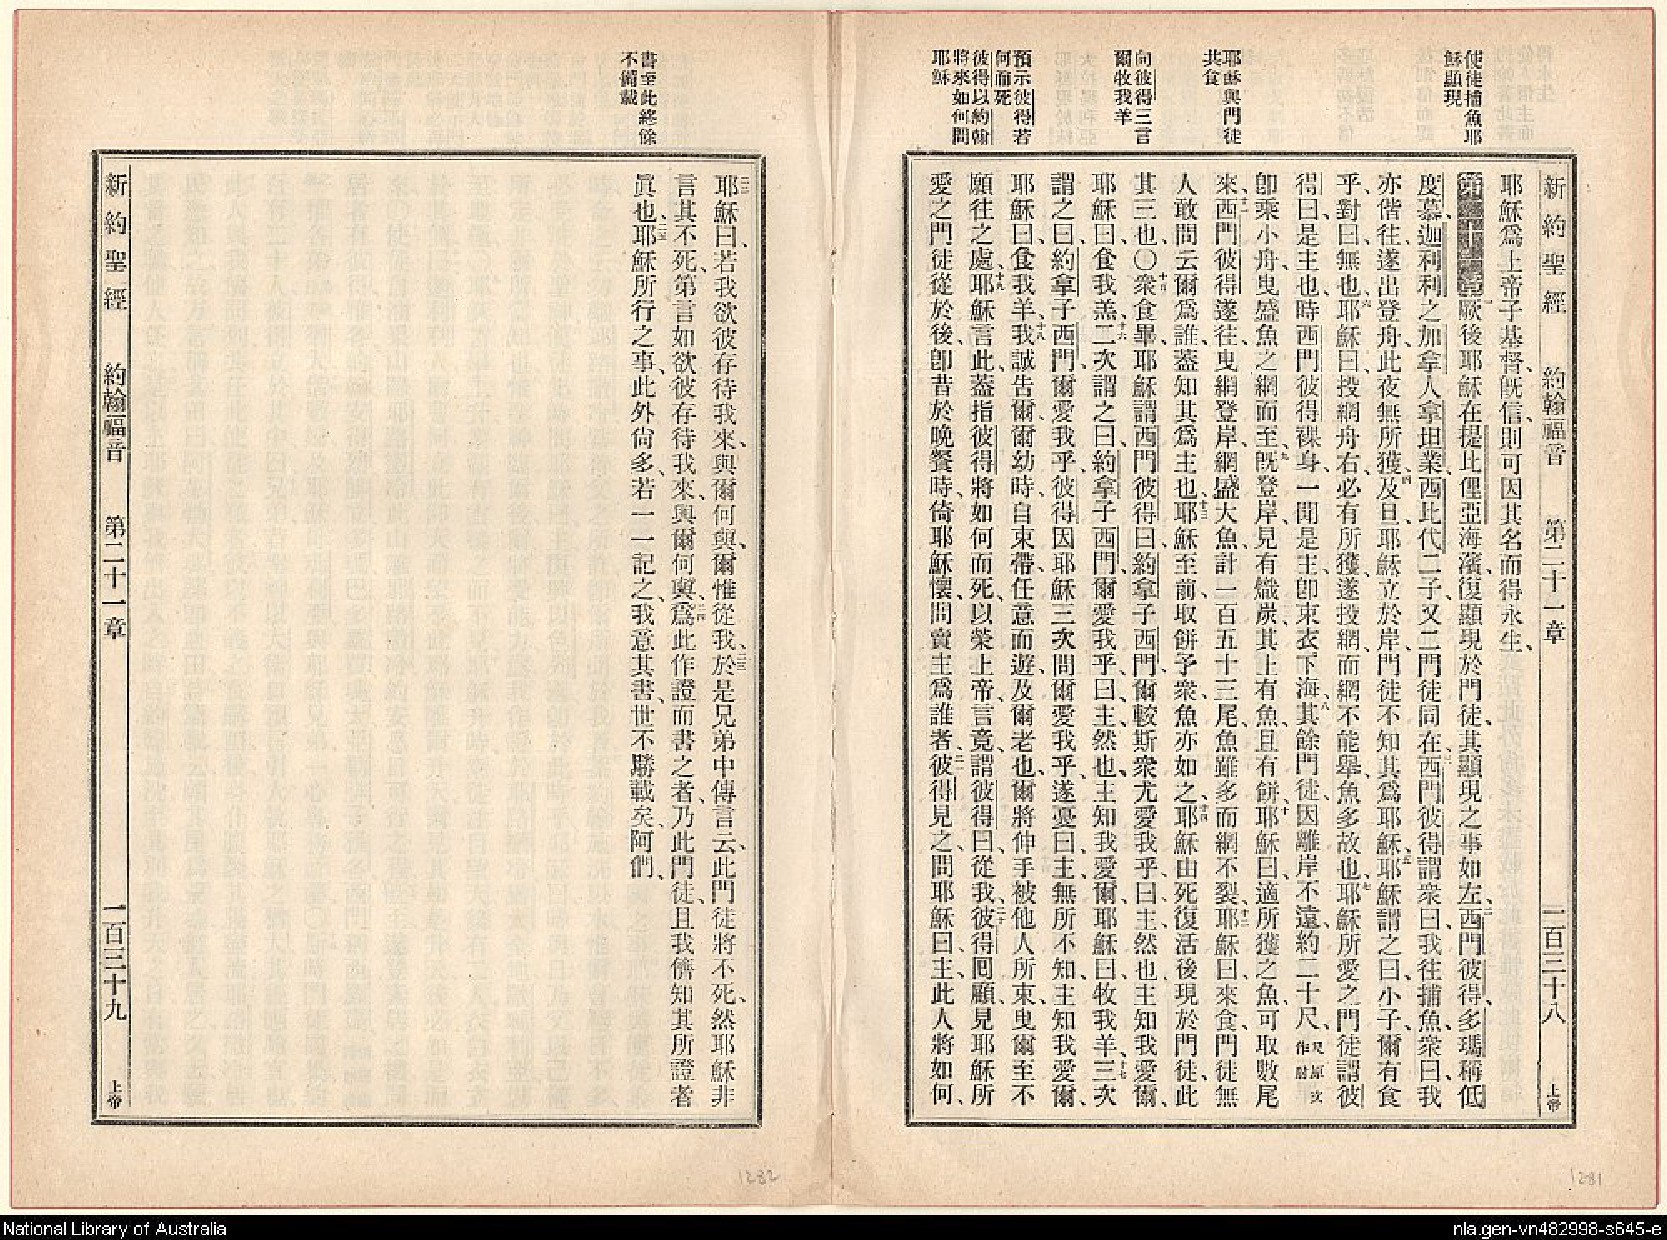 新約聖經 約翰福音 第二十一章 一百三十八 上帝
使徒捕魚耶
穌顯現
耶穌與門徒
共食
向彼得三言
爾牧我羊
預示彼得若
何而死
彼得以約翰
將來如何問
耶穌
耶穌爲上帝子基督、旣信、則可因其名而得永生、
第二十一章 一厥後耶穌在提比俚亞海濱、復顯現於門徒、其顯現之事如左、二西門彼得、多瑪稱低
度慕、迦利利之加拿人拿坦業、西比代二子、又二門徒同在、三西門彼得謂衆曰、我往捕魚、衆曰、我
亦偕往、遂出登舟、此夜無所獲、四及旦、耶穌立於岸、門徒不知其爲耶穌、五耶穌謂之曰、小子、爾有食
乎、對曰、無也、六耶穌曰、投網舟右、必有所獲、遂投網、而網不能舉、魚多故也、七耶穌所愛之門徒謂彼
得曰、是主也、時西門彼得裸身、一聞是主、卽束衣下海、八其餘門徒、因離岸不遠、約二十尺、尺原文作尉
卽乘小舟、曳盛魚之網而至、九旣登岸、見有熾炭、其上有魚、且有餅、十耶穌曰、適所獲之魚、可取數尾
來、十一西門彼得遂往、曳網登岸、網盛大魚、計一百五十三尾、魚雖多而網不裂、十二耶穌曰、來食、門徒無
人敢問云、爾爲誰、蓋知其爲主也、十三耶穌至前、取餅予衆、魚亦如之、十四耶穌由死復活後、現於門徒、此
其三也、〇十五衆食畢、耶穌謂西門彼得曰、約拿子西門、爾較斯衆尤愛我乎、曰、主、然也、主知我愛爾、
耶穌曰、食我羔、十六二次謂之曰、約拿子西門、爾愛我乎、曰、主、然也、主知我愛爾、耶穌曰、牧我羊、十七三次
謂之曰、約拿子西門、爾愛我乎、彼得因耶穌三次問爾愛我乎、遂憂、曰、主無所不知、主知我愛爾、
耶穌曰、食我羊、十八我誠告爾、爾幼時、自束帶任意而遊、及爾老也、爾將伸手被他人所束、曳爾至不
願往之處、十九耶穌言此、蓋指彼得將如何而死、以榮上帝、言竟、謂彼得曰、從我、二十彼得回顧、見耶穌所
愛之門徒從於後、卽昔於晚餐時、倚耶穌懷、問賣主爲誰者、二一彼得見之、問耶穌曰、主、此人將如何、
書至此終餘
不備載
二二耶穌曰、若我欲彼存待我來、與爾何與、爾惟從我、二三於是兄弟中傳言云、此門徒將不死、然耶穌非
言其不死、第言如欲彼存待我來、與爾何與、二四爲此作證而書之者、乃此門徒、且我儕知其所證者
眞也、二五耶穌所行之事、此外尙多、若一一記之、我意其書、世不勝載矣、阿們、
新約聖經 約翰福音 第二十一章 一百三十九 上帝
1282
1281
National Library of Australia
nla.gen-vn482998-s645-e